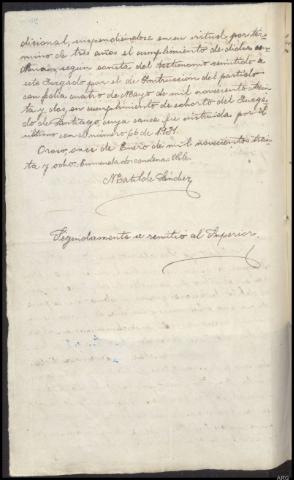 dicional, suspendiéndose en su virtud, por tér-
mino de tres años el cumplimiento de dicha con-
dena, según consta del testimonio remitido a
este Juzgado por el de Instrucción del partido
con fecha cuatro de Mayo de mil novecientos trein-
ta y dos, en cumplimiento de exhorto del Juzga-
do de Santiago, cuya causa fue instruida por el
último con el número 66 de 1931.
Orovo, once de Enero de mil novecientos trein-
ta y ocho. Enmendado condena. Vale.
Matilde Sández
Seguidamente se remitió al Superior.
ARG